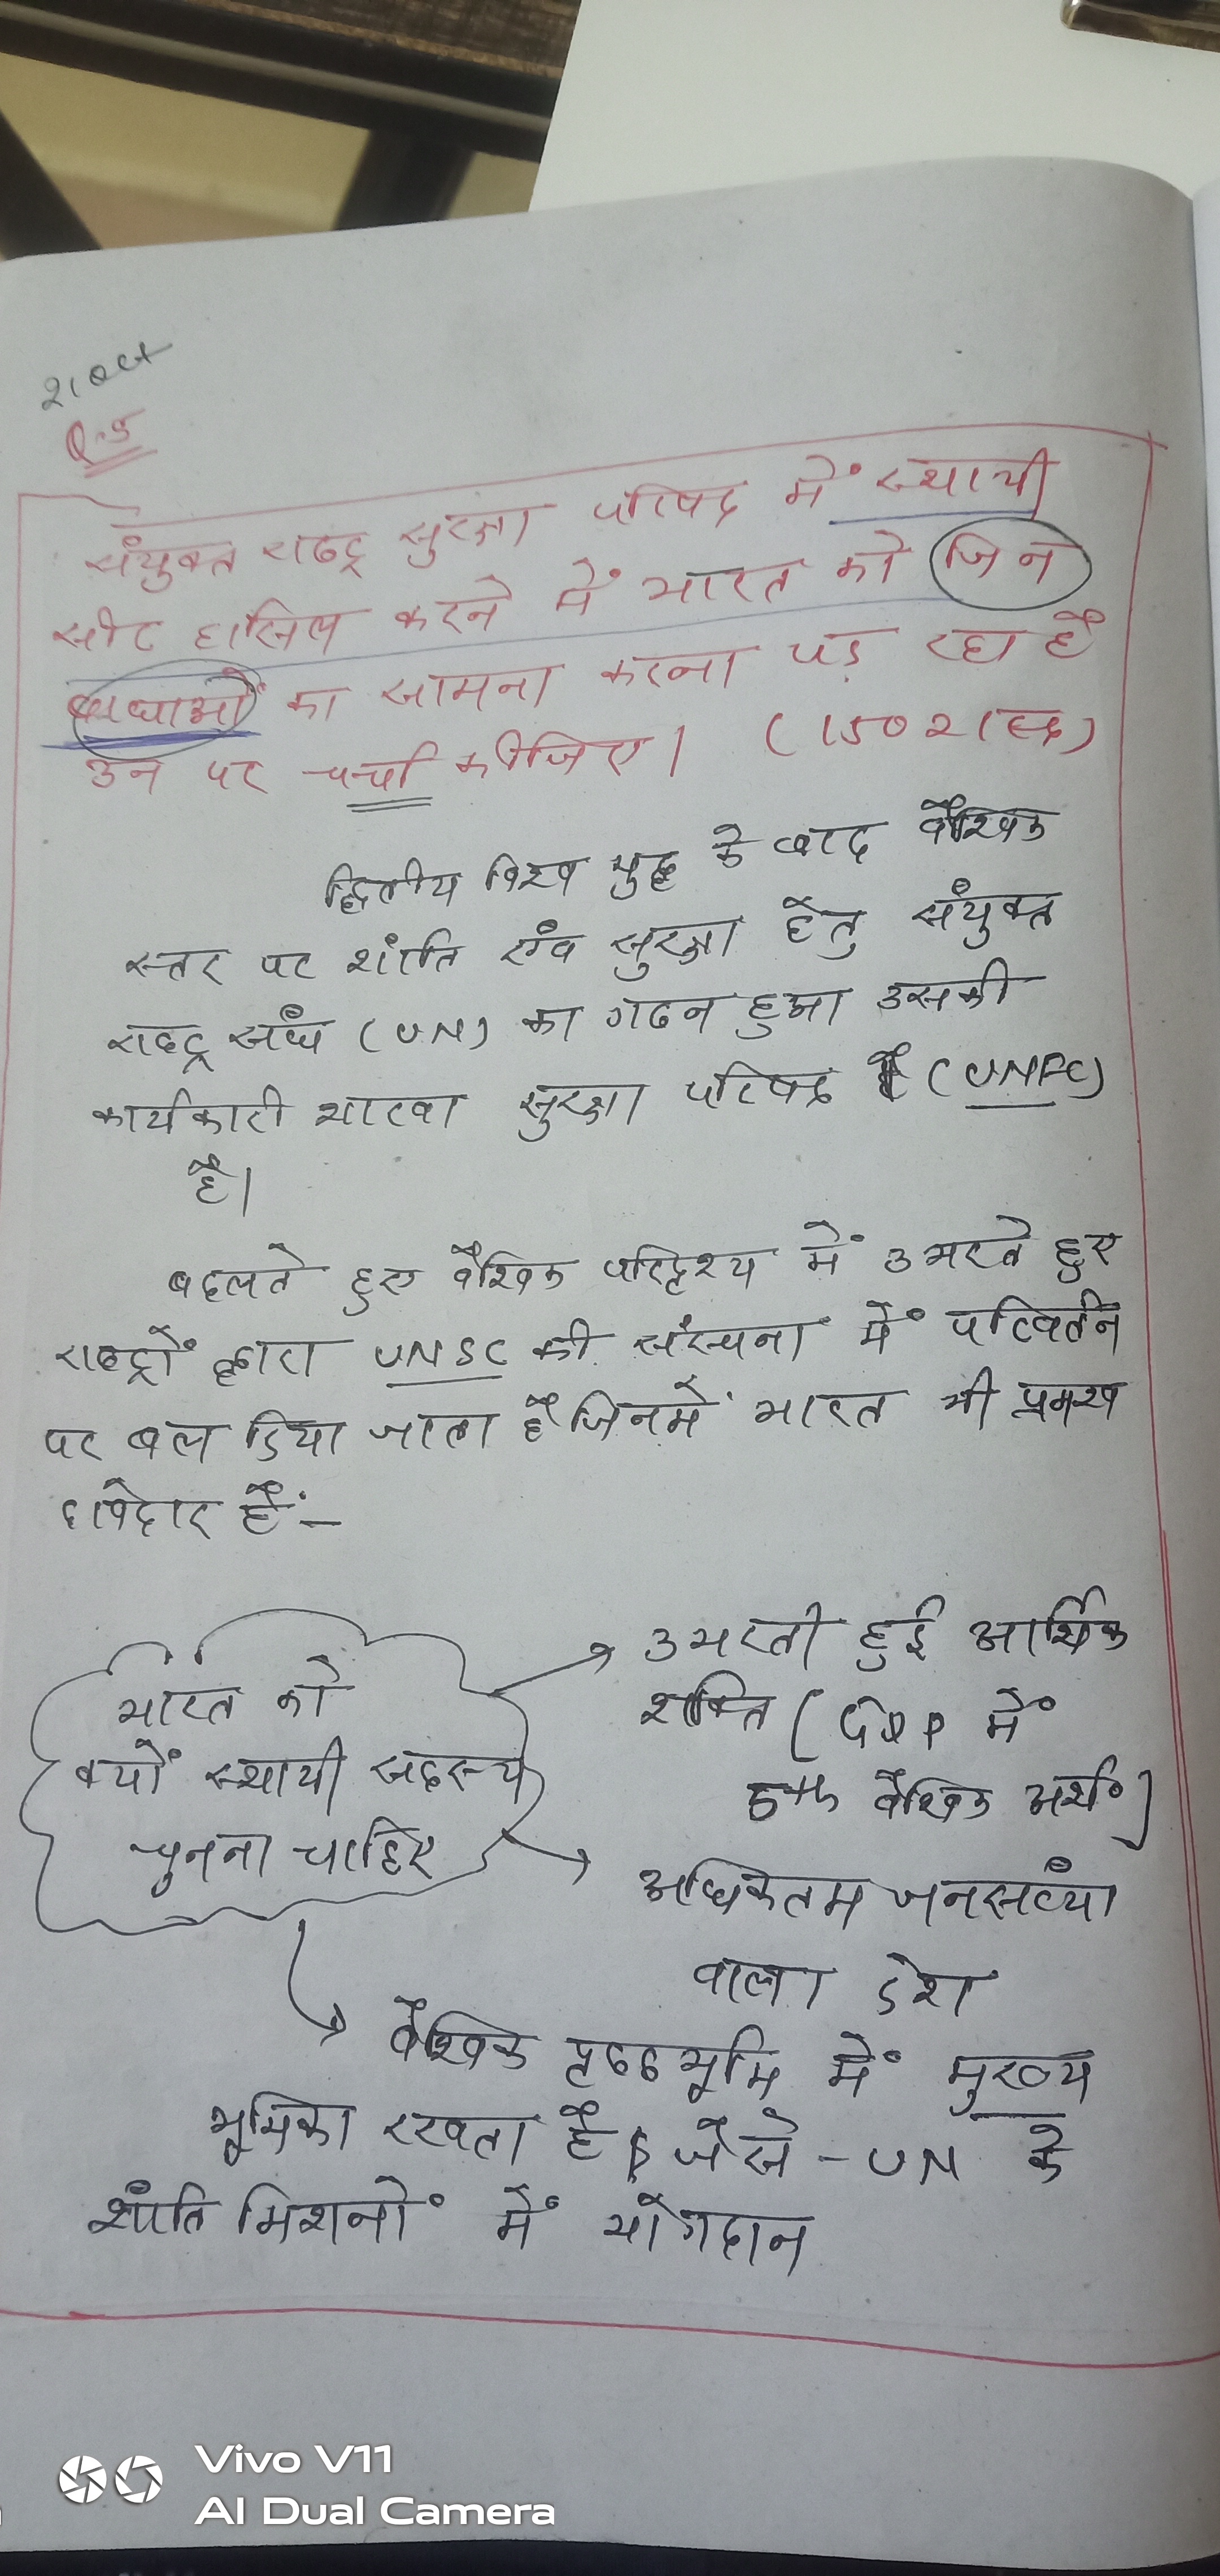 21 Oct
Q.5
संयुक्त राष्ट्र सुरक्षा परिषद में स्थायी
सीट हासिल करने में भारत को जिन
बाधाओं का सामना करना पड़ रहा है
उन पर चर्चा कीजिए। (150 शब्द)
द्वितीय विश्व युद्ध के बाद वैश्विक
स्तर पर शांति एंव सुरक्षा हेतु संयुक्त
राष्ट्र संघ (UN) का गठन हुआ उसकी
कार्यकारी शाखा सुरक्षा परिषद (UNSC)
है।
बदलते हुए वैश्विक परिदृश्य में उभरते हुए
राष्ट्रों द्वारा UNSC की संरचना में परिवर्तन
पर बल दिया जाता है जिनमें भारत भी प्रमुख
दावेदार है:-
भारत को
क्यों स्थायी सदस्य
चुनना चाहिए
उभरती हुई आर्थिक
शक्ति (GDP में
5th वैश्विक अर्थ०)
अधिकतम जनसंख्या
वाला देश
वैश्विक पृष्ठभूमि में मुख्य
भूमिका रखता है जैसे - UN के
शांति मिशनों में योगदान
Vivo V11
AI Dual Camera